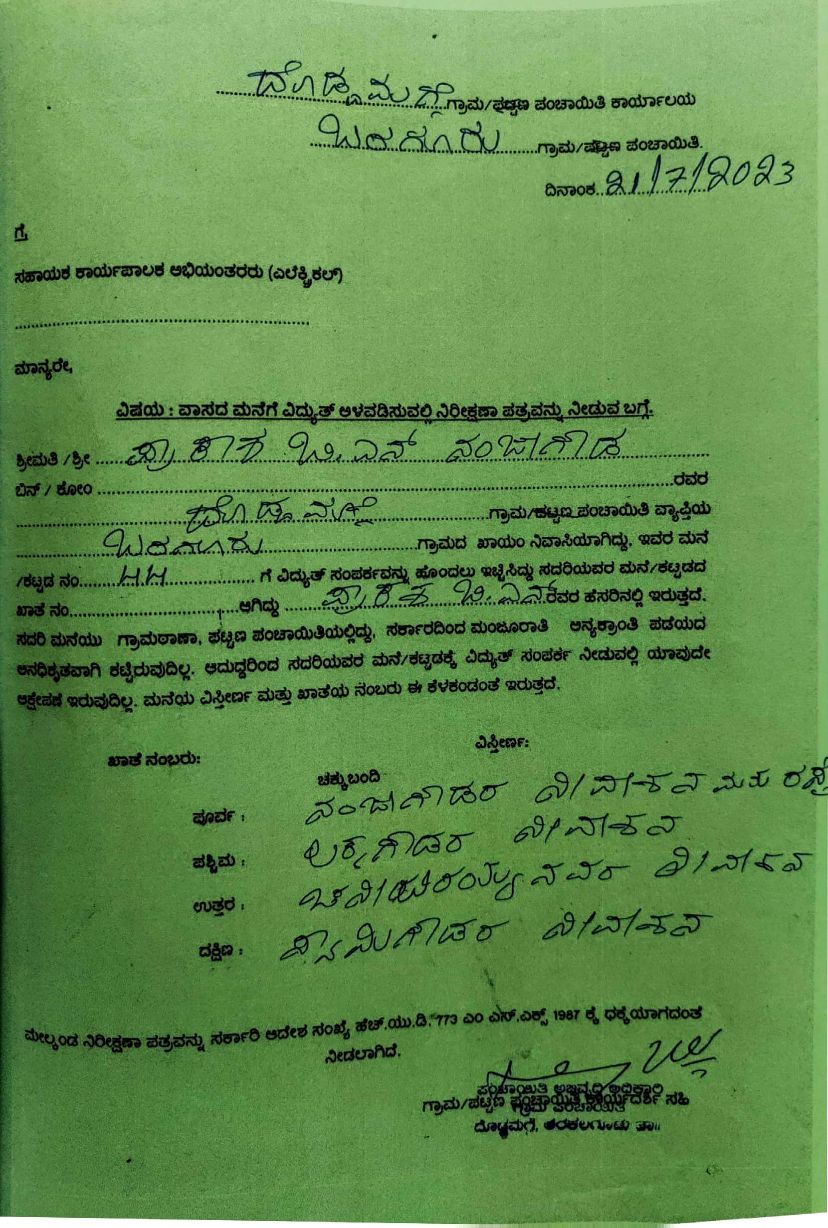 ದೊಡ್ಡಮಗ್ಗೆ ಗ್ರಾಮ/ಪಟ್ಟಣ ಪಂಚಾಯಿತಿ ಕಾರ್ಯಾಲಯ
ಬರಗೂರು ಗ್ರಾಮ/ಪಟ್ಟಣ ಪಂಚಾಯಿತಿ.
ದಿನಾಂಕ. 21/7/2023
ಗೆ,
ಸಹಾಯಕ ಕಾರ್ಯಪಾಲಕ ಅಭಿಯಂತರರು (ಎಲೆಕ್ಟ್ರಿಕಲ್)
ಮಾನ್ಯರೇ,
ವಿಷಯ : ವಾಸದ ಮನೆಗೆ ವಿದ್ಯುತ್ ಅಳವಡಿಸುವಲ್ಲಿ ನಿರೀಕ್ಷಣಾ ಪತ್ರವನ್ನು ನೀಡುವ ಬಗ್ಗೆ.
ಶ್ರೀಮತಿ /ಶ್ರೀ ಪ್ರಾಕಾಶ ಬಿ.ಎನ್ ನಂಜಾಗೌಡ
ಬಿನ್ / ಕೋಂ ರವರ
ದೊಡ್ಡಮಗ್ಗೆ ಗ್ರಾಮ/ಪಟ್ಟಣ ಪಂಚಾಯಿತಿ ವ್ಯಾಪ್ತಿಯ
ಬರಗೂರು ಗ್ರಾಮದ ಖಾಯಂ ನಿವಾಸಿಯಾಗಿದ್ದು, ಇವರ ಮನೆ
/ಕಟ್ಟಡ ನಂ. ಗೆ ವಿದ್ಯುತ್ ಸಂಪರ್ಕವನ್ನು ಹೊಂದಲು ಇಚ್ಛಿಸಿದ್ದು ಸದರಿಯವರ ಮನೆ/ಕಟ್ಟಡದ
ಖಾತೆ ನಂ. ಆಗಿದ್ದು ಪ್ರಾಕಶ ಬಿ.ಎನ್ ರವರ ಹೆಸರಿನಲ್ಲಿ ಇರುತ್ತದೆ.
ಸದರಿ ಮನೆಯು ಗ್ರಾಮಠಾಣಾ, ಪಟ್ಟಣ ಪಂಚಾಯಿತಿಯಲ್ಲಿದ್ದು, ಸರ್ಕಾರದಿಂದ ಮಂಜೂರಾತಿ ಅನ್ಯಕ್ರಾಂತಿ ಪಡೆಯದ
ಅನಧಿಕೃತವಾಗಿ ಕಟ್ಟಿರುವುದಿಲ್ಲ. ಆದುದ್ದರಿಂದ ಸದರಿಯವರ ಮನೆ/ಕಟ್ಟಡಕ್ಕೆ ವಿದ್ಯುತ್ ಸಂಪರ್ಕ ನೀಡುವಲ್ಲಿ ಯಾವುದೇ
ಆಕ್ಷೇಪಣೆ ಇರುವುದಿಲ್ಲ. ಮನೆಯ ವಿಸ್ತೀರ್ಣ ಮತ್ತು ಖಾತೆಯ ನಂಬರು ಈ ಕೆಳಕಂಡಂತೆ ಇರುತ್ತದೆ.
ಖಾತೆ ನಂಬರು: ವಿಸ್ತೀರ್ಣ:
ಚಕ್ಕುಬಂದಿ
ಪೂರ್ವ : ನಂಜಾಗೌಡರ ನೀವಾಶನ ಮತು ರಸ್ತೆ
ಪಶ್ಚಿಮ : ಲಕ್ಕಗೌಡರ ನೀವಾಶನ
ಉತ್ತರ : ನವರ ನೀವಾಶನ
ದಕ್ಷಿಣ : ಸ್ವಾಮಿಗೌಡರ ನೀವಾಶನ
ಮೇಲ್ಕಂಡ ನಿರೀಕ್ಷಣಾ ಪತ್ರವನ್ನು ಸರ್ಕಾರಿ ಆದೇಶ ಸಂಖ್ಯೆ ಹೆಚ್.ಯು.ಡಿ. 773 ಎಂ ಎನ್.ಎಕ್ಸ್ 1987 ಕ್ಕೆ ಧಕ್ಕೆಯಾಗದಂತೆ
ನೀಡಲಾಗಿದೆ.
ಪಂಚಾಯಿತಿ ಅಭಿವೃದ್ಧಿ ಅಧಿಕಾರಿ
ಗ್ರಾಮ/ಪಟ್ಟಣ ಪಂಚಾಯಿತಿ ಕಾರ್ಯದರ್ಶಿ ಸಹಿ
ಗ್ರಾಮ ಪಂಚಾಯಿತಿ
ದೊಡ್ಡಮಗ್ಗೆ, ಅರಕಲಗೂಡು ತಾ॥